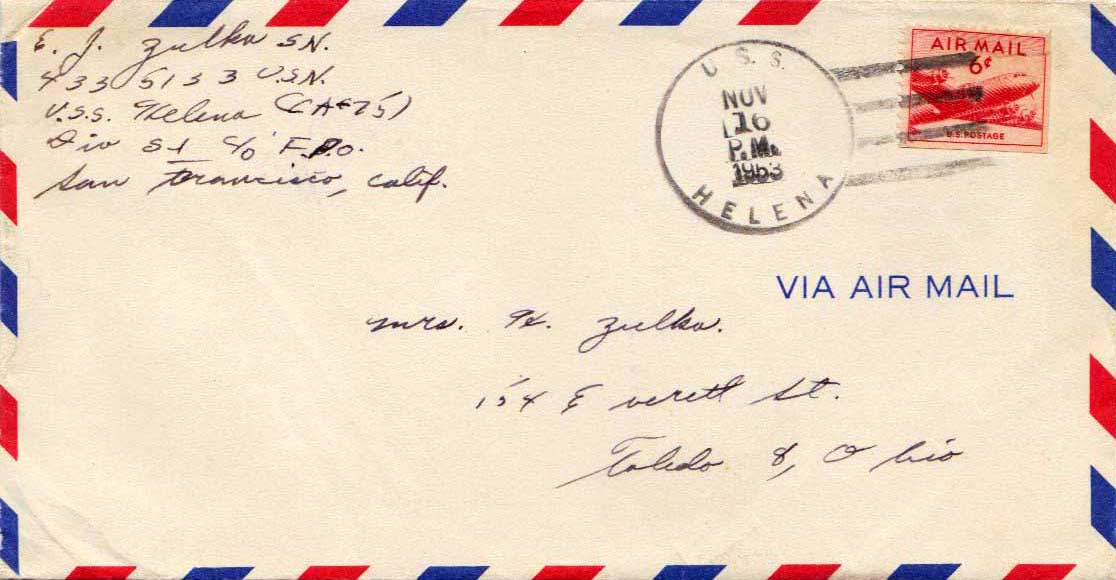 E. J. Zulka SN.
433 51 33 U.S.N.
U.S.S. Helena (CA-75)
Div S-1 c/o F.P.O.
San Francisco, Calif.
U.S.S.
NOV
16
P.M.
1953
HELENA
AIR MAIL
6¢
U.S. POSTAGE
VIA AIR MAIL
Mrs. H. Zulka.
154 Everett St.
Toledo 8, Ohio